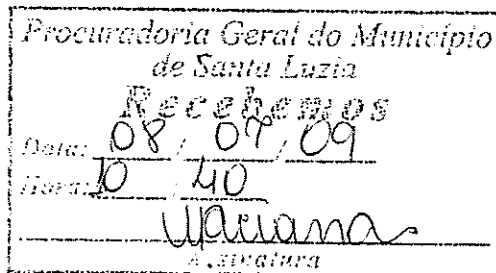 Procuradoria Geral do Município
de Santa Luzia
Recebemos
Data: 08 / 07 / 09
Hora: 10 / 40
Mariana
Assinatura